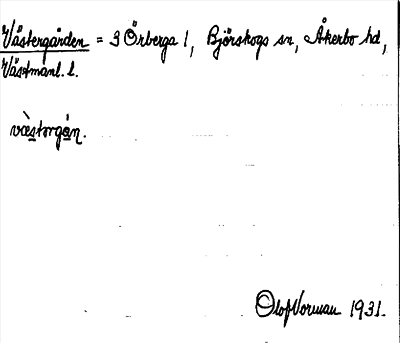 Västergården = 3 Örberga 1, Björskogs sn, Åkerbo hd,
Västmanl. l.
væ̀stərgán.
Olof Vorman 1931.